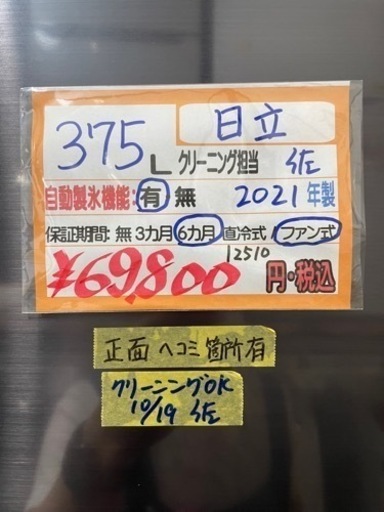 日立
375L クリーニング担当 佐
自動製氷機能:有 無 2021年製
保証期間: 無 3カ月 6カ月 直冷式 / ファン式
12510
¥69,800 円・税込
正面 ヘコミ箇所有
クリーニングOK
10/19 佐